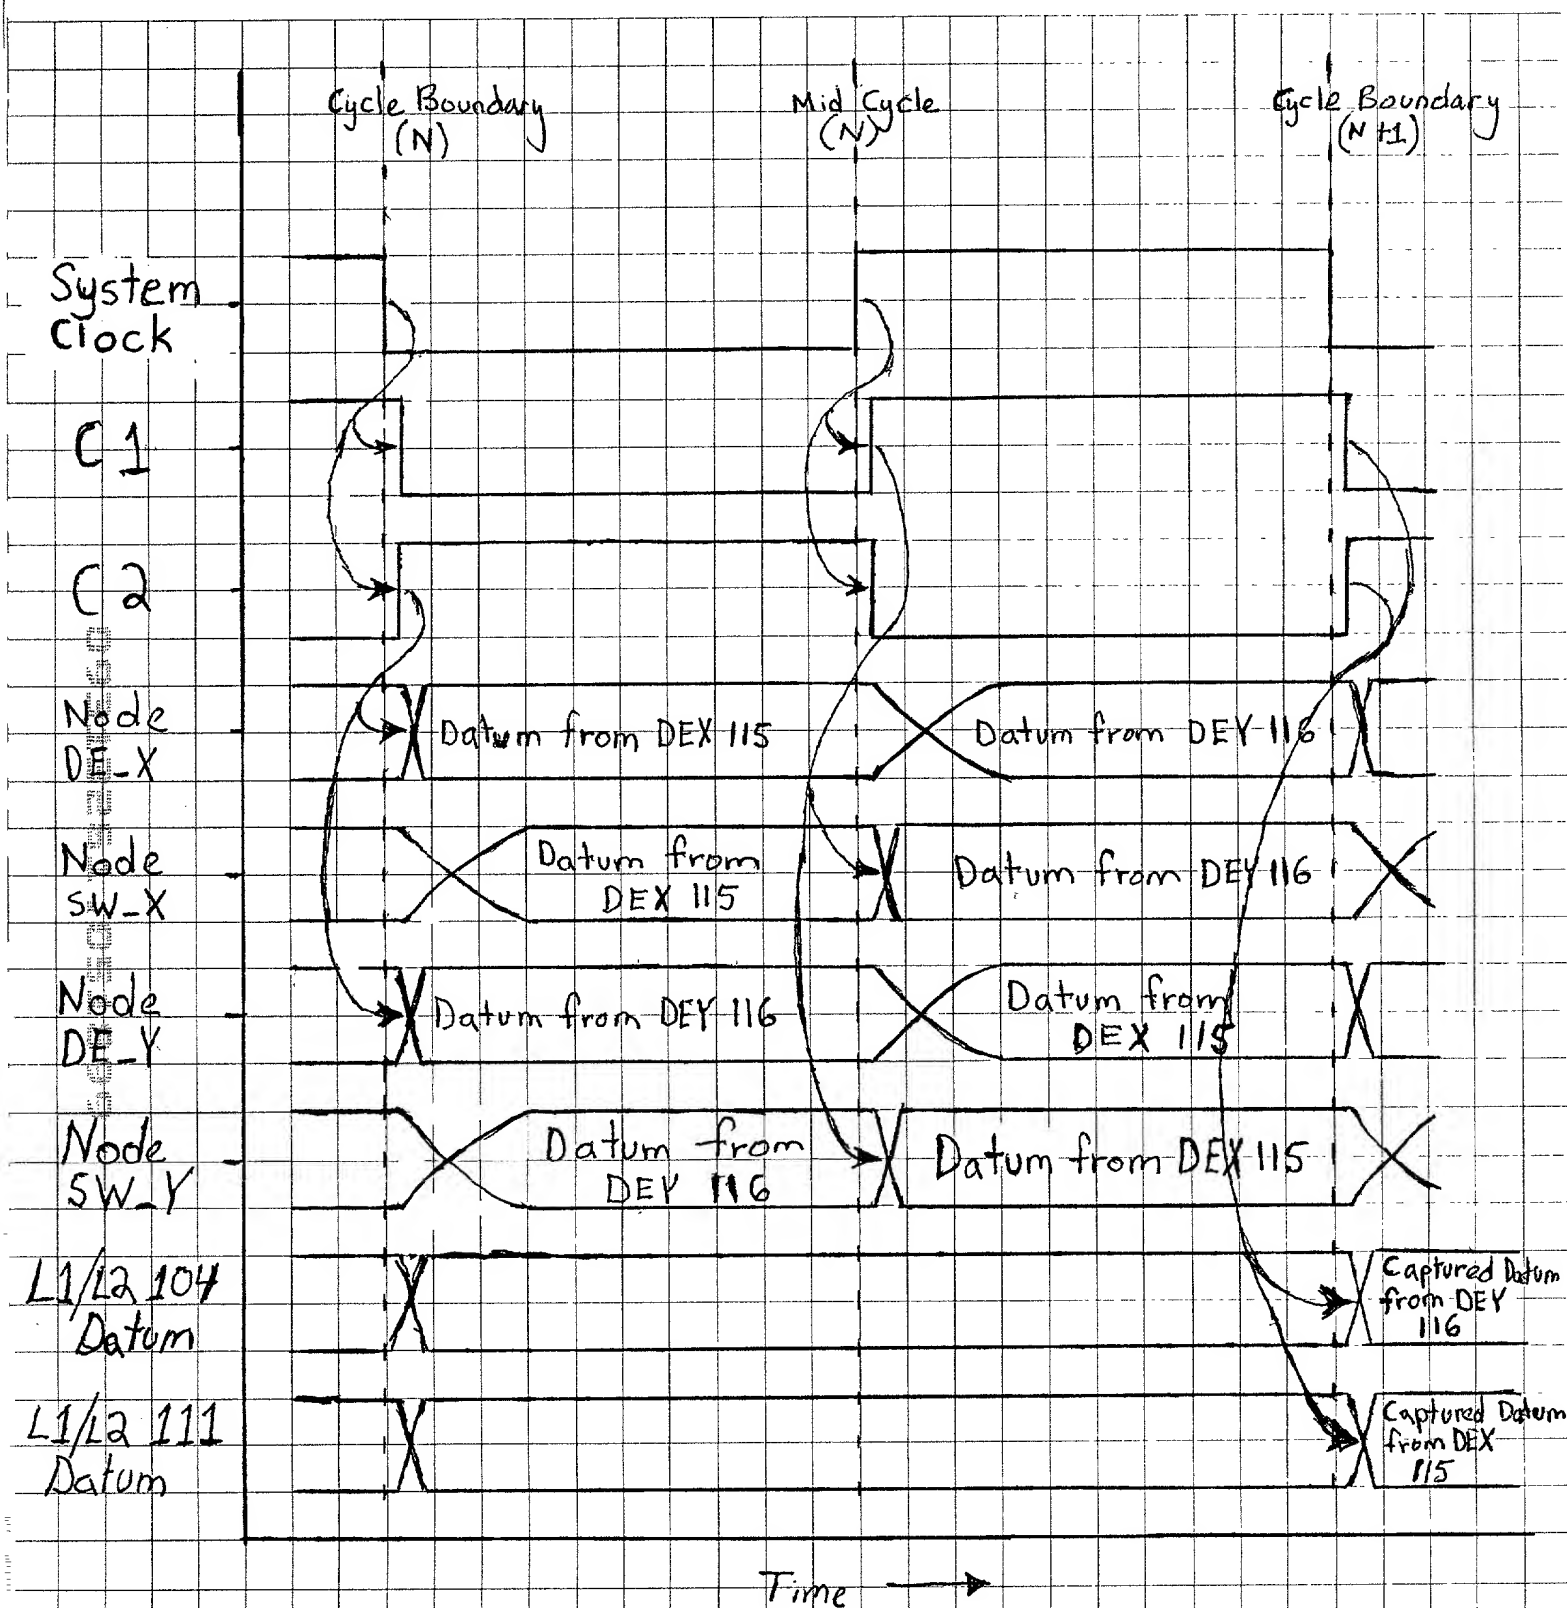 Cycle Boundary
(N)
Mid Cycle
(N)
Cycle Boundary
(N+1)
System
Clock
C1
C2
Node
DE_X
Datum from DEX 115
Datum from DEY 116
Node
SW_X
Datum from
DEX 115
Datum from DEY 116
Node
DE_Y
Datum from DEY 116
Datum from
DEX 115
Node
SW_Y
Datum from
DEY 116
Datum from DEX 115
L1/L2 104
Datum
Captured Datum
from DEY
116
L1/L2 111
Datum
Captured Datum
from DEX
115
Time